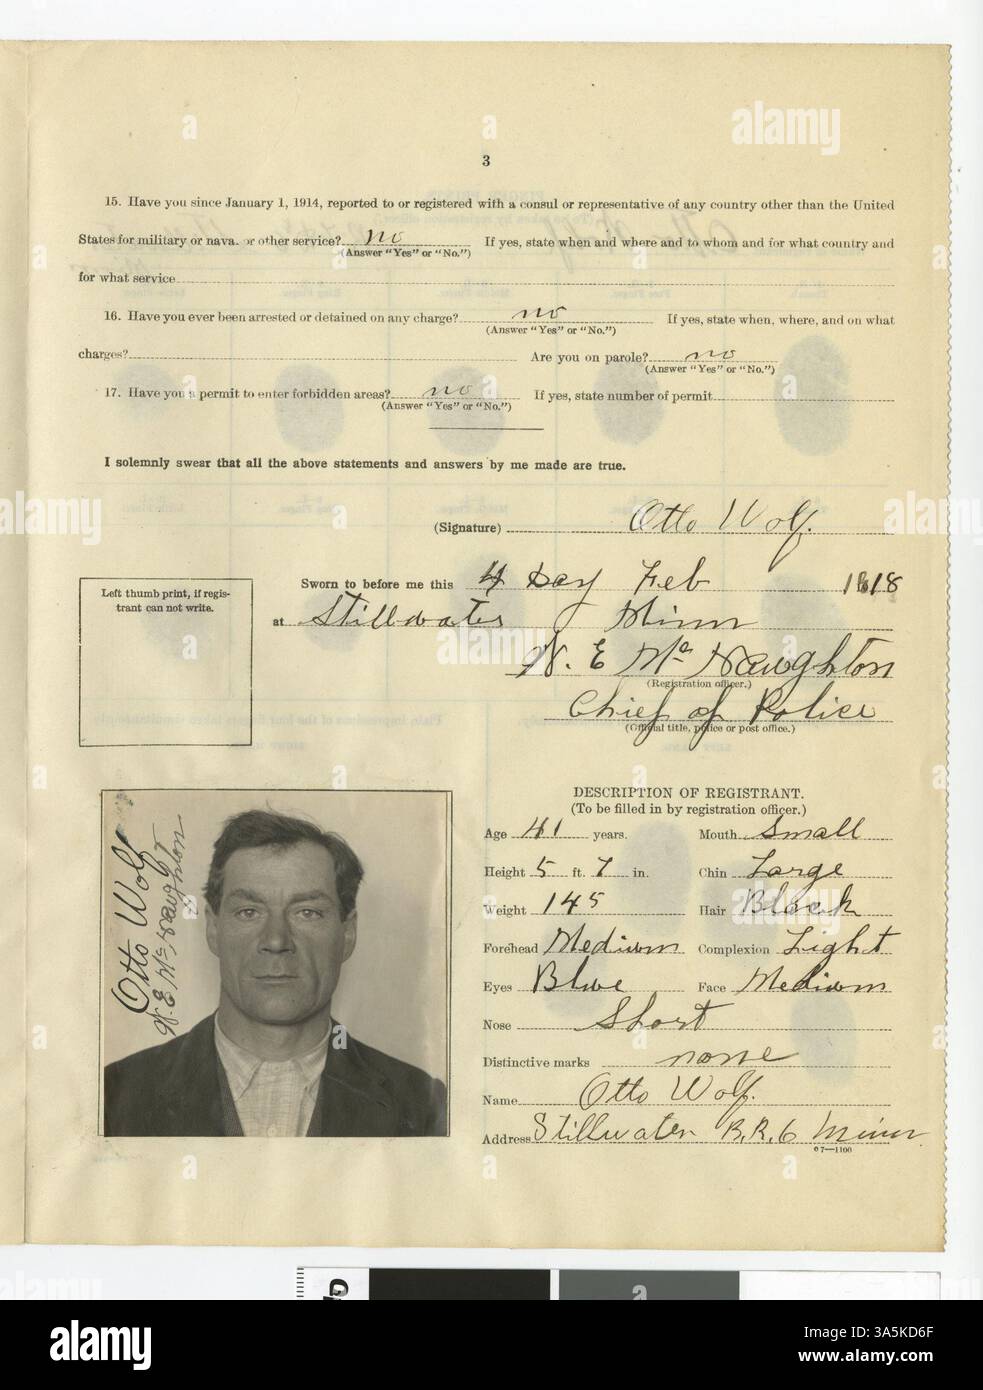 3
15. Have you since January 1, 1914, reported to or registered with a consul or representative of any country other than the United
States for military or nava. or other service? no If yes, state when and where and to whom and for what country and
(Answer "Yes" or "No.")
for what service
16. Have you ever been arrested or detained on any charge? no If yes, state when, where, and on what
(Answer "Yes" or "No.")
charges? Are you on parole? no
(Answer "Yes" or "No.")
17. Have you a permit to enter forbidden areas? no If yes, state number of permit
(Answer "Yes" or "No.")
I solemnly swear that all the above statements and answers by me made are true.
(Signature) Otto Wolf.
Sworn to before me this 4 Day Feb 1818
at Stillwater Minn
N. E Mc Naughton
(Registration officer.)
Chief of Police
(Official title, police or post office.)
Left thumb print, if regis-
trant can not write.
Otto Wolf
N. E Mc Naughton
DESCRIPTION OF REGISTRANT.
(To be filled in by registration officer.)
Age 41 years. Mouth Small
Height 5 ft. 7 in. Chin Large
Weight 145 Hair Black
Forehead Medium Complexion Light
Eyes Blue Face Medium
Nose Short
Distinctive marks none
Name Otto Wolf.
Address Stillwater R.R. 6 Minn.
c7—1100
alamy
a
alamy
Image ID: 3A5KD6F
www.alamy.com